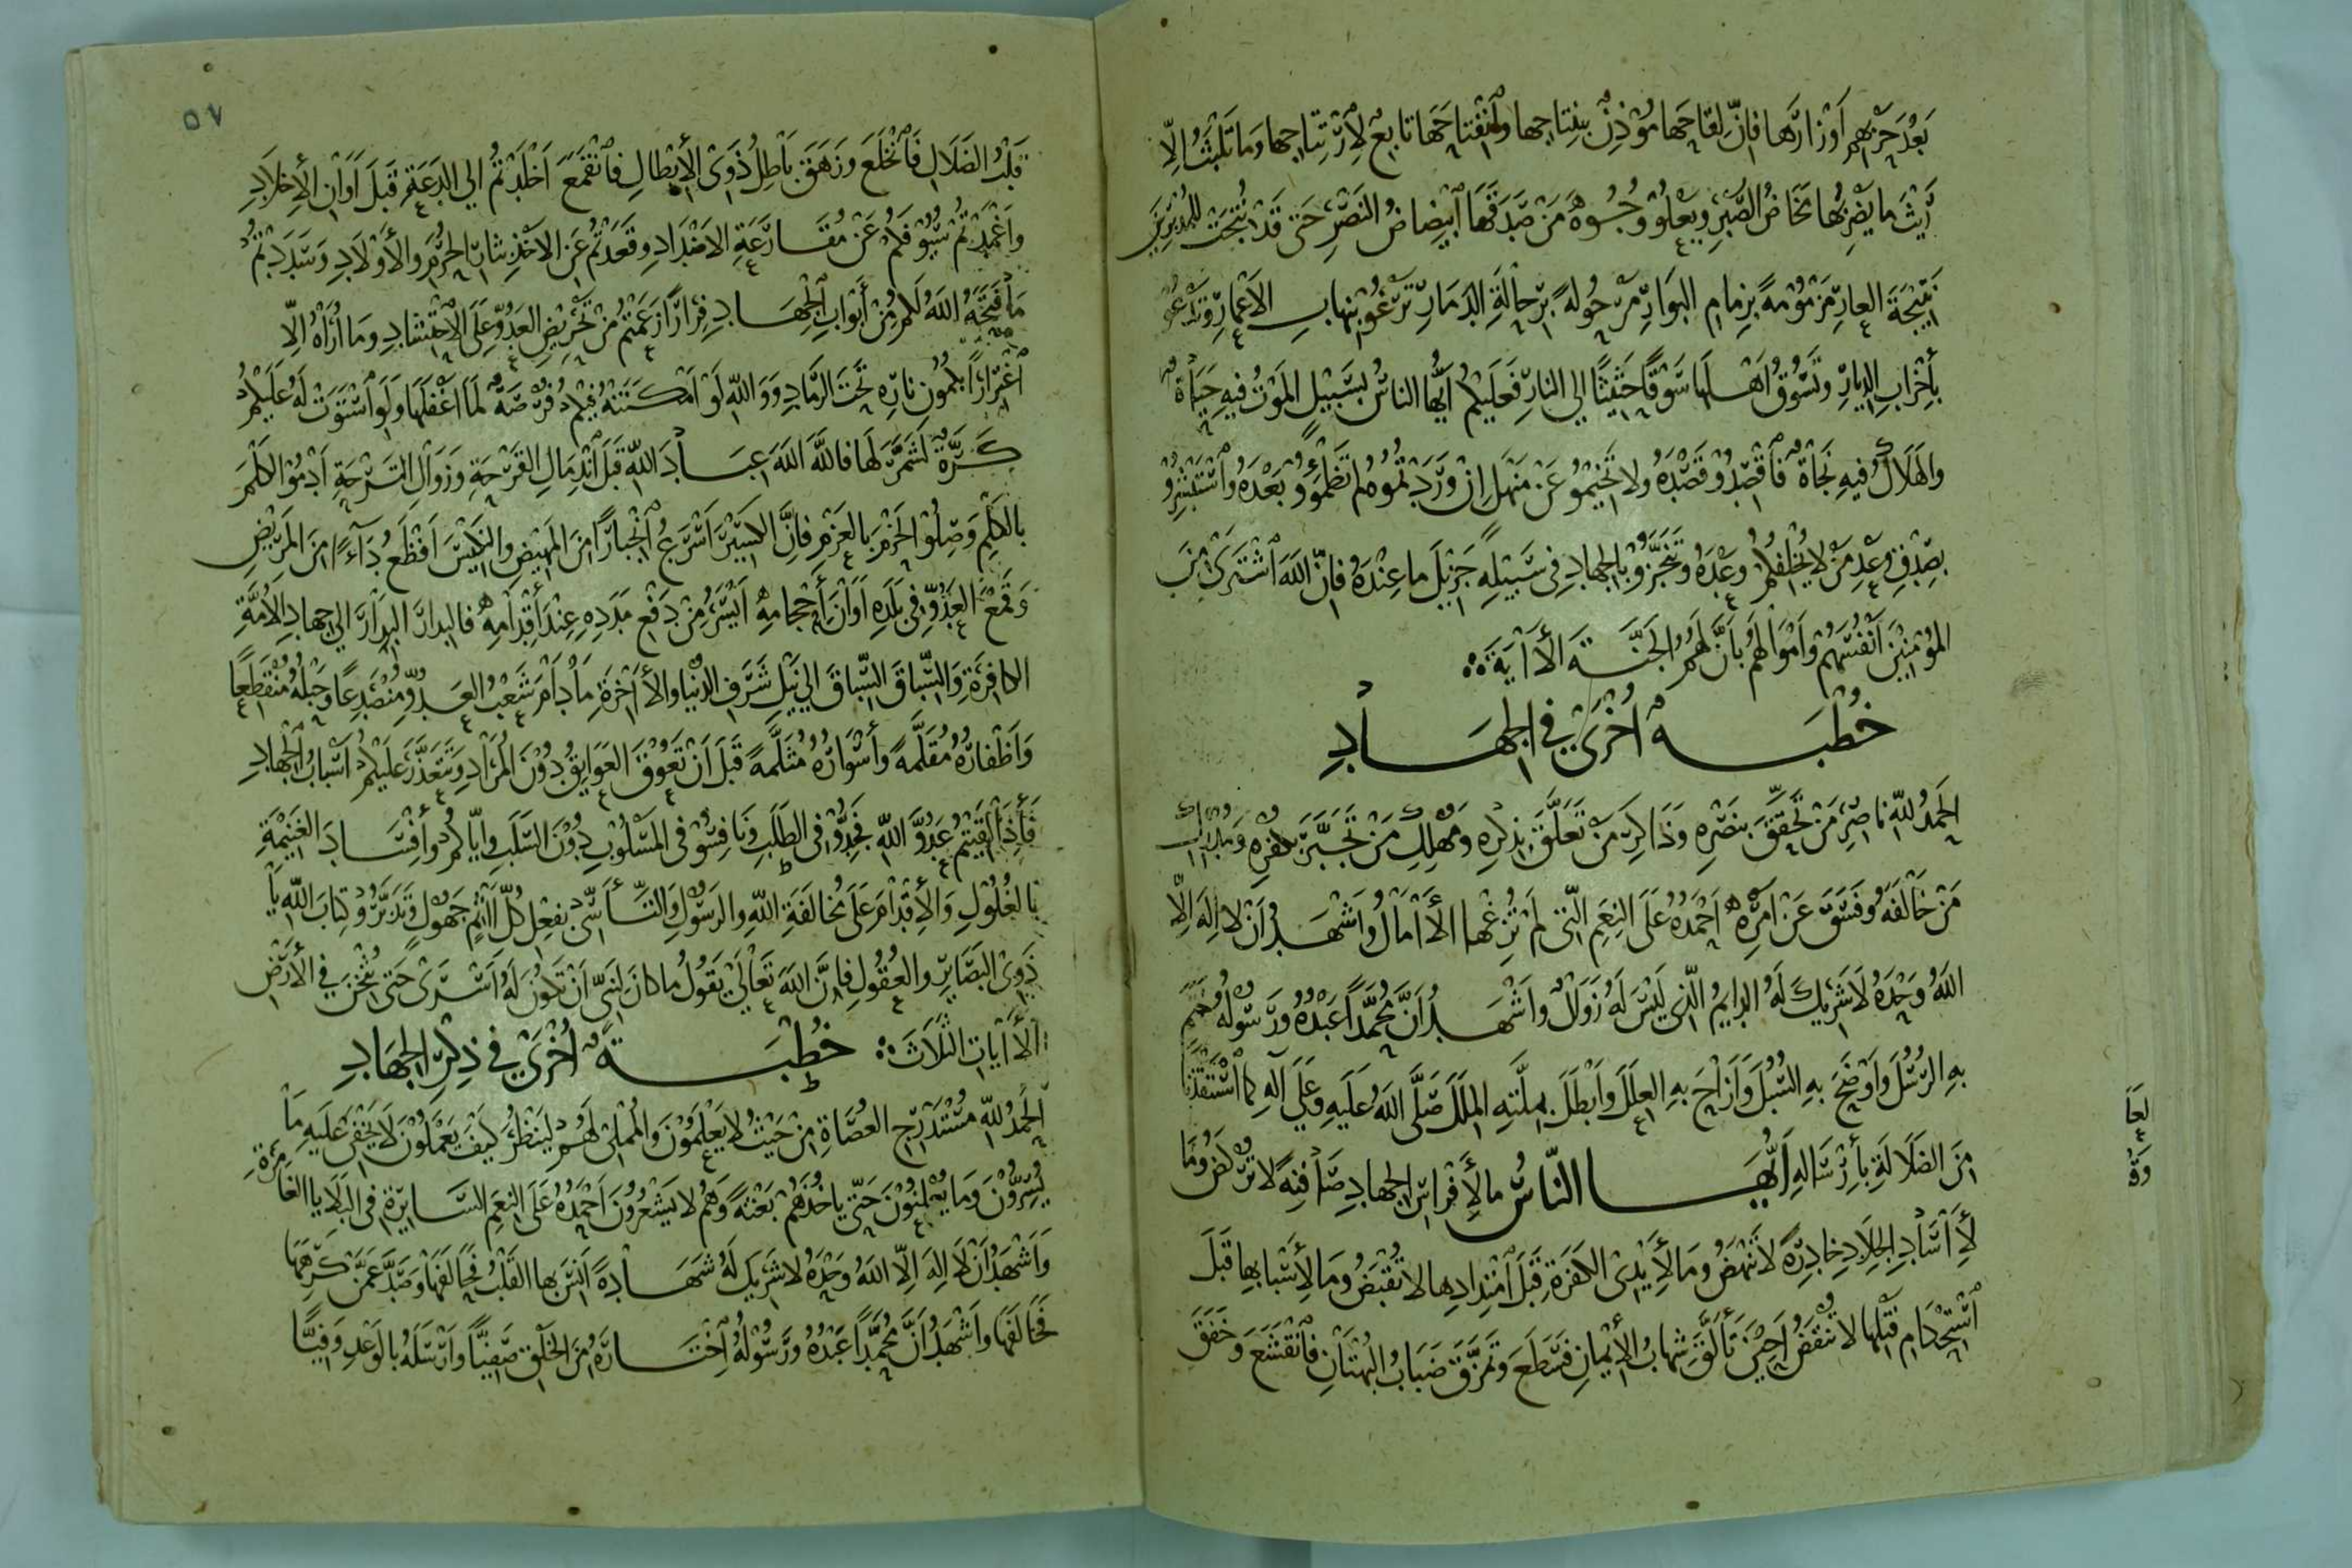 بَعْدَ حَرْبِهِم أَوْزَارَها فَإِنَّ لِقَاحَهَا مُؤْذِنٌ بِنِتَاجِها وَانْفِتَاحَهَا تَابِعٌ لِإِرْتِتَاجِها وَمَا تَلْبَثُ إِلَّا
رَيْثَ ما يَضْرِبُها مَخَاضُ الصَّبْرِ وَيَعْلُو وُجُوهَ مَنْ صَدَقَهَا ابْيِضَاضُ النَصْرِ حَتى قَدْ نُتِجَتْ لِلْمُدْبِرِينَ
نَتِيْجَةَ العارِ مَزْمُوْمَةً بِزِمامِ البَوَارِ مَرْحُولَةً بِرِحالَةِ الدَمَارِ تَرْغُو بِنِهابِ الأَعْمارِ وَتَدْعُو
بِأِخْرابِ الدِيارِ وَتَسُوْقُ أَهْلَها سَوْقًا حَثِيْثًا إلى النارِ فَعَلَيْكُم أَيُّها الناسُ بِسَبِيْلٍ المَوْتُ فِيهِ حَيَاةٌ
وَالهَلَاكُ فِيهِ نَجَاةٌ فَاقْصِدُوْا قَصْدَهُ وَلا تَخِيْمُوْا عَنْ مَنْهَلٍ إِنْ وَرَدْتُمُوهُ لَمْ تَظْمَؤُوْا بَعْدَهُ وَاسْتَبْشِرُوْا
بِصِدْقِ وَعْدِ مَنْ لا يُخْلِفُكُم وَعْدَهُ وَتَنَجَّزُوْا بِالجِهادِ فِى سَبِيْلِهِ جَزِيْلَ ما عِنْدَهُ فَإِنَّ اللهَ اشْتَرَى مِنَ
المُؤْمِنِيْنَ أَنْفُسَهُمْ وَأَمْوَالَهُم بِأَنَّ لَهُمُ الجَنَّةَ الأَايَةَ
خُطْبَةٌ أُخْرَى فِي الجِهَادِ
الحَمْدُ لِلّٰهِ نَاصِرِ مَنْ تَحَقَّقَ بِنَصْرِهِ وَذَاكِرِ مَنْ تَعَلَّقَ بِذِكْرِهِ وَمُهْلِكِ مَنْ تَجَبَّرَ بِكُفْرِهِ وَمُدْرِكِ
مَنْ خَالَفَهُ وَفَسَقَ عَنْ أَمْرِهِ أَحْمَدُهُ عَلَى النِعَمِ الَّتِى لَمْ تُرْغِهَا الأَامَالُ وَأَشْهَدُ أَنْ لا إِلٰهَ إِلَّا
اللهُ وَحْدَهُ لا شَرِيْكَ لَهُ الدايِمُ الَّذِي لَيْسَ لَهُ زَوَالٌ وَأَشْهَدُ أَنَّ مُحَمَّدًا عَبْدُهُ وَرَسُوْلُهُ خَتَمَ
بِهِ الرُسُلَ وَأَوْضَحَ بِهِ السُبُلَ وَأَزَاحَ بِهِ العِلَلَ وَأَبْطَلَ بِمِلَّتِهِ المِلَلَ صَلَّى اللهُ عَلَيهِ وَعَلَى آلِهِ كَمَا اسْتَنْقَذَنَا
مِنَ الضَلَالَةِ بِأِرْسَالِهِ أَيُّهَا النَّاسُ مَا لِأَفْرَاسِ الجِهَادِ صَافِنَةً لا تَرْكُضُ وَمَا
لِأَسْادِ الجِلَادِ خَادِرَةً لا تَنْهَضُ وَمَا لِأَيْدِى الكَفَرَةِ قَبْلَ امْتِدَادِها لا تُقْبَضُ وَمَا لِأَسْبَابِها قَبْلَ
اسْتِحْكامِ فَتْلِها لا تُنْقَضُ أَحِيْنَ تَأَلَّقَ شِهابُ الإِيْمَانِ فَسَطَعَ وَتَمَزَّقَ ضَبَابُ البُهْتَانِ فَانْقَشَعَ وَخَفَقَ
٥٧
قَلْبُ الضَلَالِ فَانْخَلَعَ وَزَهَقَ بَاطِلُ ذَوِى الأِبْطَالِ فَانْقَمَعَ أَخْلَدْتُمْ إلى الدَعَةِ قَبْلَ أَوَانِ الأِخْلَادِ
وَأَغْمَدْتُمْ سُيُوْفَكُمْ عَنْ مُقَارَعَةِ الأَضْدَادِ وَقَعَدْتُمْ عَنِ الأَخْذِ بِثَارِ الحُرَمِ وَالأَوْلَادِ وَسَدَدْتُمْ
مَا فَتَحَهُ اللهُ لَكُمْ مِنْ أَبْوَابِ الجِهَادِ فِرَارًا زَعَمْتُمْ مِنْ تَحْرِيْضِ العَدُوِّ عَلَى الاحْتِشَادِ وَمَا أُرَاهُ إِلَّا
اغْتِرَارًا بِكُمُونِ نَارِهِ تَحْتَ الرَّمَادِ وَوَاللّٰهِ لَوْ أَمْكَنَتْهُ فِيْكُمْ فُرْصَةٌ لَمَا أَغْفَلَهَا وَلَوِ اسْتَوَتْ لَهُ عَلَيْكُمْ
كَرَّةٌ لَشَمَّرَ لَهَا فَاللهَ اللهَ عِبَادَ اللّٰهِ قَبْلَ انْدِمَالِ القَرْحَةِ وَزَوَالِ التَرْحَةِ أَدْمُوْا الكَلْمَ
بِالكَلْمِ وَصِلُوْا الحَزْمَ بِالعَزْمِ فَإِنَّ الكَسِيْرَ أَسْرَعُ انْجِبَارًا مِنَ المَهِيْضِ وَالنَكِيْسَ أَفْظَعُ دَآءً مِنَ المَرِيْضِ
وَقَمْعُ العَدُوِّ فِى بَلَدِهِ أَوَانَ أِحْجَامِهِ أَيْسَرُ مِنْ دَفْعِ مَدَدِهِ عِنْدَ أِقْدَامِهِ فَالبِدَارَ البِدَارَ إلى جِهَادِ الأُمَّةِ
الكَافِرَةِ وَالسِّبَاقَ السِّبَاقَ إلى نَيْلِ شَرَفِ الدُنْيَا وَالأَاخِرَةِ مَادَامَ شَعْبُ العَدُوِّ مُنْصَدِعًا وَحَبْلُهُ مُنْقَطِعًا
وَأَظْفَارُهُ مُقَلَّمَةً وَأَسْوَارُهُ مُثَلَّمَةً قَبْلَ أَنْ تَعُوْقَ العَوَايِقُ دُوْنَ المُرَادِ وَتَتَعَذَّرَ عَلَيْكُمْ أَسْبَابُ الجِهَادِ
فَأِذَا لَقِيْتُمْ عَدُوَّ اللّٰهِ فَجِدُّوْا فِى الطَلَبِ وَنَافِسُوْا فِى المَسْلُوْبِ دُوْنَ السَلَبِ وَإِيَّاكُمْ وَأِفْسَادَ الغَنِيْمَةِ
بِالغُلُوْلِ وَالأِقْدَامَ عَلَى مُخَالَفَةِ اللّٰهِ وَالرَسُوْلِ وَالتَأَسِّىَ بِفِعْلِ كُلِّ أَاثِمٍ جَهُوْلٍ وَتَدَبَّرُوْا كِتَابَ اللّٰهِ يَا
ذَوِى البَصَايِرِ وَالعُقُولِ فَإِنَّ اللهَ تَعَالَى يَقُولُ مَا كَانَ لِنَبِىٍّ أَنْ تَكُوْنَ لَهُ أَسْرَى حَتى يُثْخِنَ فِي الأَرْضِ
الأَايَاتِ الثَّلَاثَ خُطْبَةٌ أُخْرَى فِي ذِكْرِ الجِهَادِ
الحَمْدُ لِلّٰهِ مُسْتَدْرِجِ العُصَاةِ مِنْ حَيْثُ لا يَعْلَمُوْنَ وَالمُمْلِى لَهُمْ لِيَنْظُرَ كَيْفَ يَعْمَلُوْنَ لَا يَخْفَى عَلَيهِ مَا
يُسِرُّوْنَ وَمَا يُعْلِنُوْنَ حَتَّى يَاخُذَهُمْ بَغْتَةً وَهُمْ لا يَشْعُرُوْنَ أَحْمَدُهُ عَلَى النِعَمِ السَّايِرَةِ فِى البَلَايا الغَامِرَةِ
وَأَشْهَدُ أَنْ لا إِلٰهَ إِلَّا اللهُ وَحْدَهُ لا شَرِيْكَ لَهُ شَهَادَةً أَنِسَ بِها القَلْبُ فَحَالَفَهَا وَصَدَّ عَمَّنْ كَرِهَهَا
فَخَالَفَهَا وَأَشْهَدُ أَنَّ مُحَمَّدًا عَبْدُهُ وَرَسُوْلُهُ اخْتَارَهُ مِنَ الخَلْقِ صَفِيًّا وَأَرْسَلَهُ بِالوَعْدِ وَفِيًّا